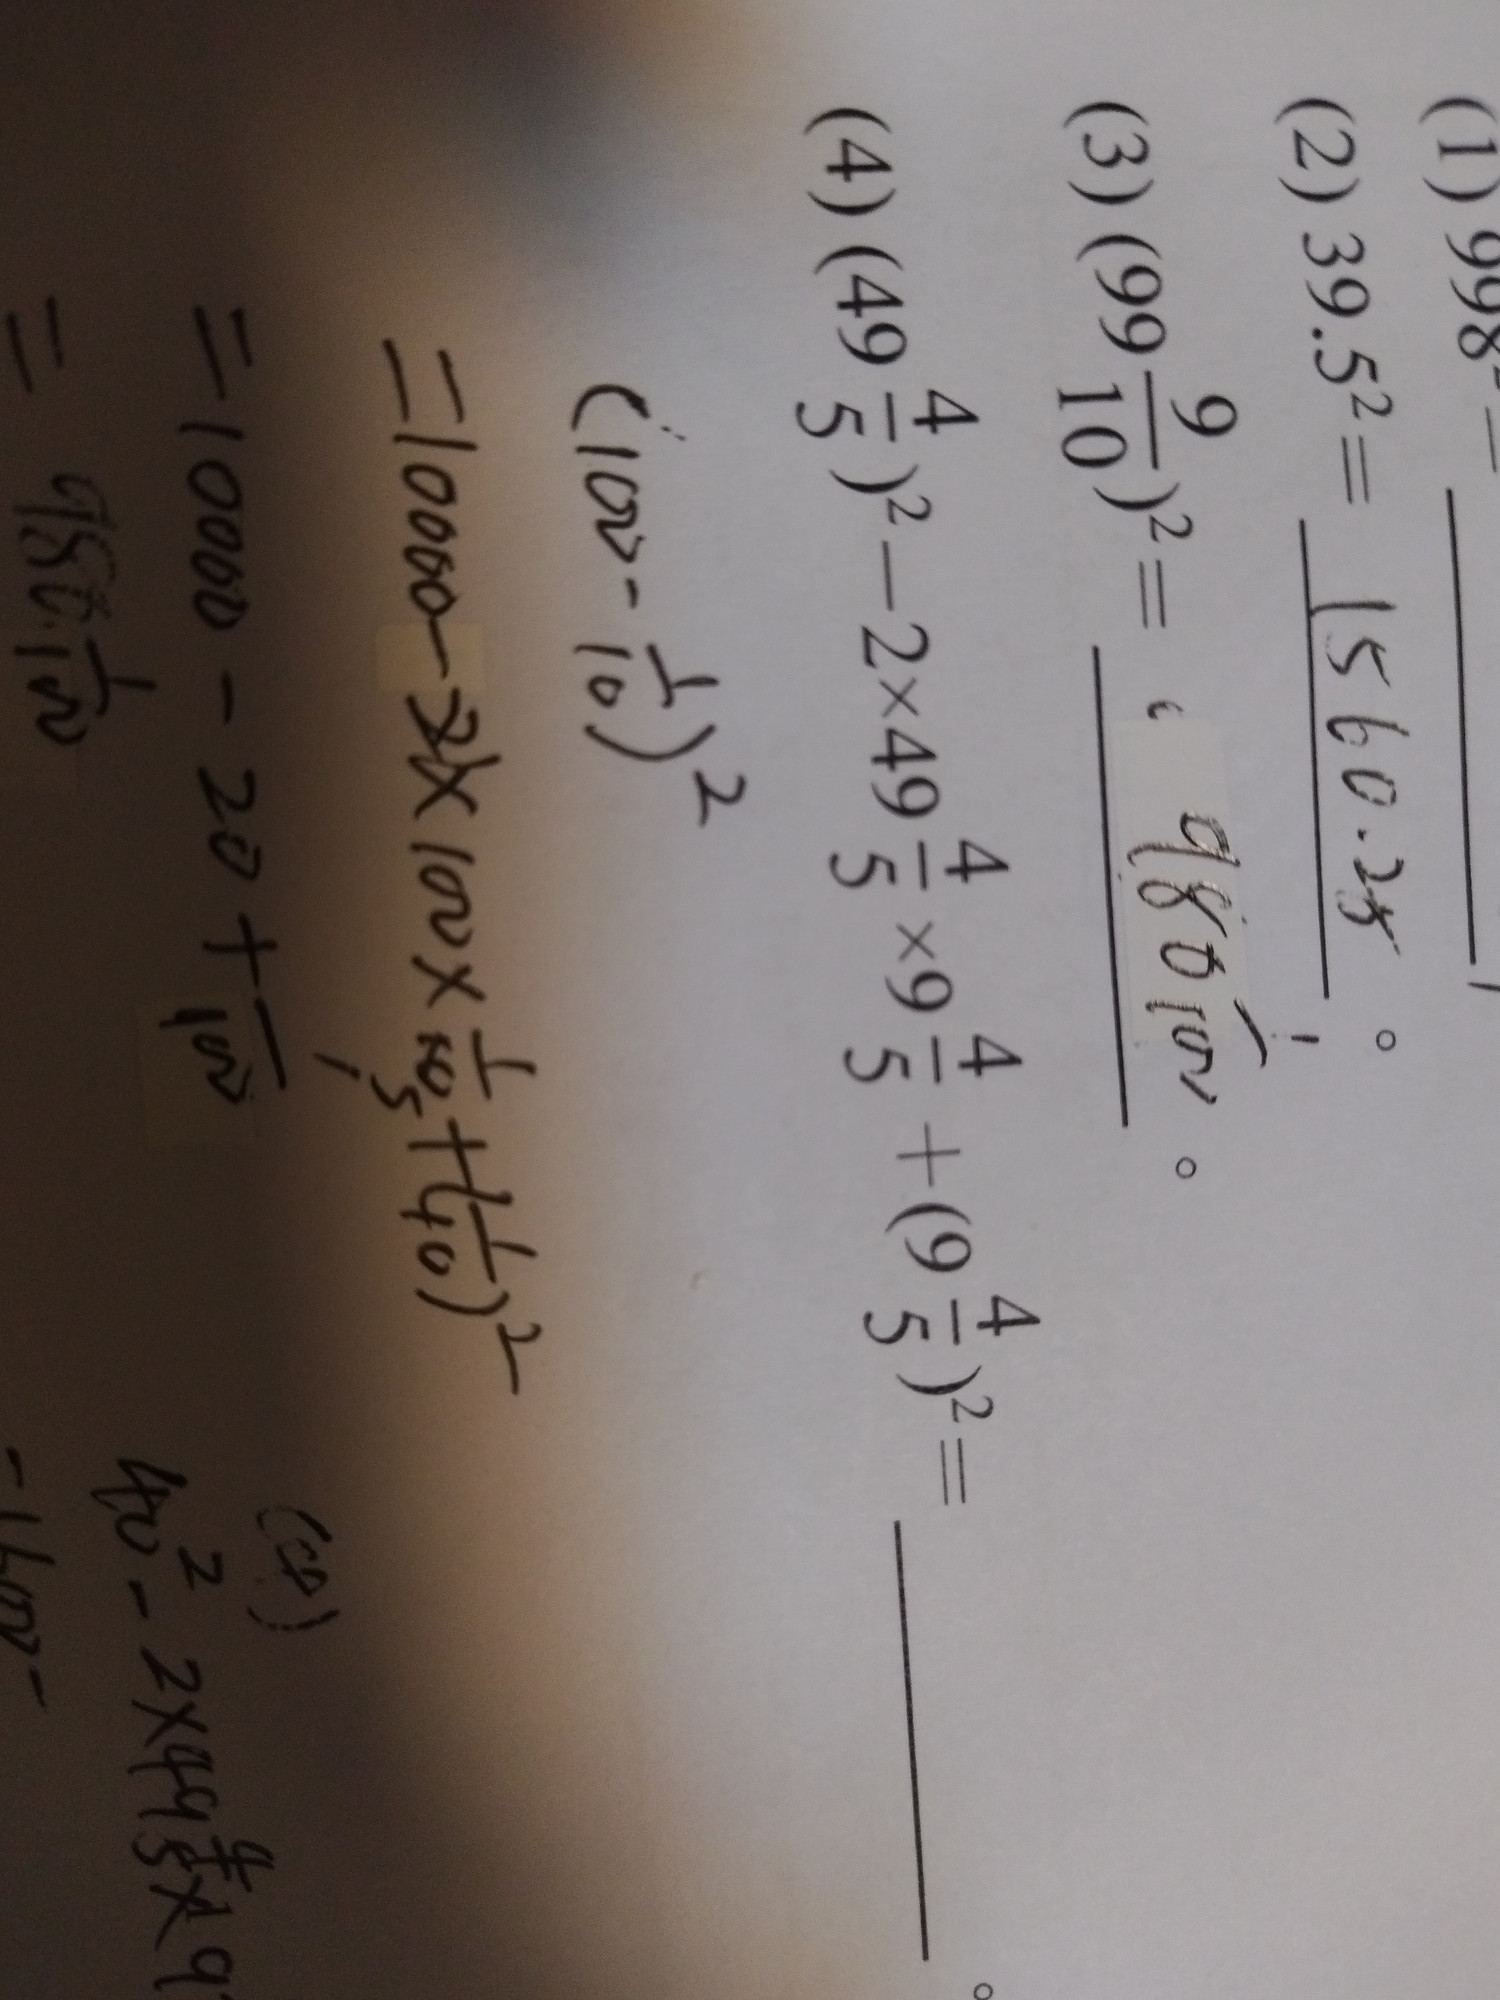 (1) 998² =
(2) 39.5² = 1560.25 。
(3) (99 9/10)² = 980 1/100 。
(4) (49 4/5)² − 2×49 4/5 ×9 4/5 + (9 4/5)² = 。
(100 - 1/10)²
= 10000 - 2×100× 1/10 + (1/10)²
= 10000 - 20 + 1/100
= 980 1/100
40² - 2×49 4/5 × 9